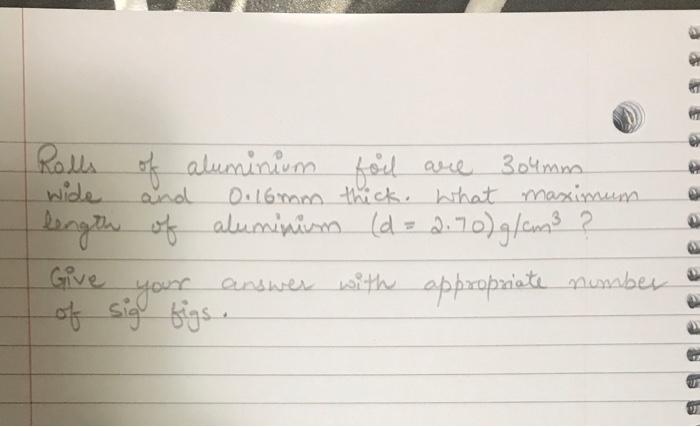 Rolls of aluminium foil are 304mm
wide and 0.16mm thick. What maximum
length of aluminium (d = 2.70) g/cm³ ?
Give your answer with appropriate number
of sig figs.